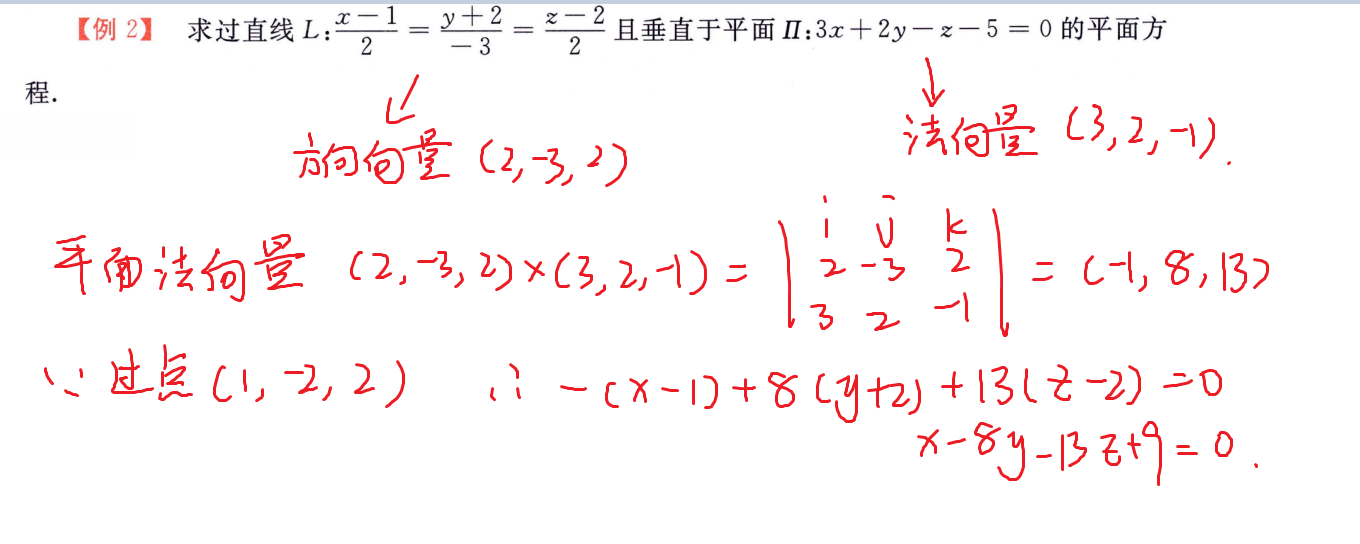 【例 2】 求过直线 L:\frac{x-1}{2}=\frac{y+2}{-3}=\frac{z-2}{2}且垂直于平面 Π:3x+2y-z-5=0 的平面方
程.
法向量 (3,2,-1).
方向向量 (2,-3,2)
平面法向量 (2,-3,2)×(3,2,-1)= | i j k | = (-1,8,13)
2 -3 2
3 2 -1
∵ 过点(1,-2,2) ∴ -(x-1)+8(y+2)+13(z-2)=0
x-8y-13z+9=0.